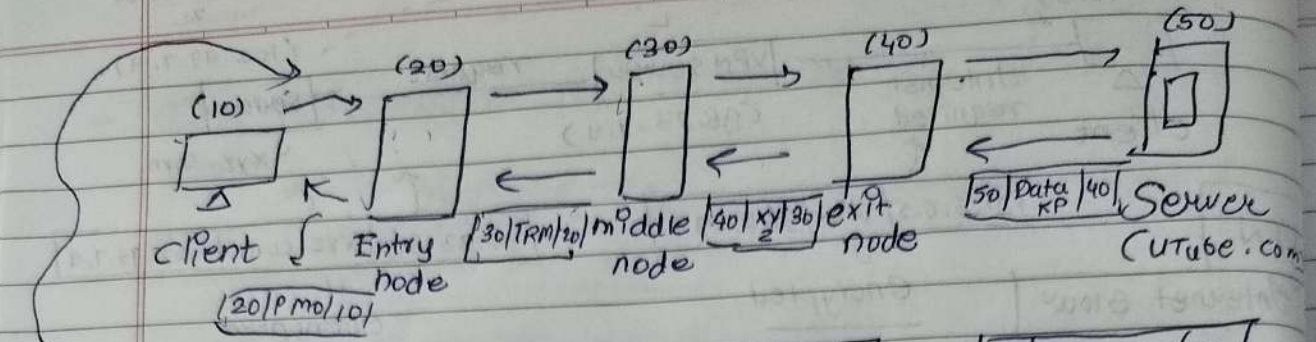 (10)
(20)
(30)
(40)
(50)
client
Entry
node
|30|TRM|20|
middle
node
|40|xyz|30|
exit
node
|50|Data XP|40|
Server
(UTube.com
|20|PMO|10|